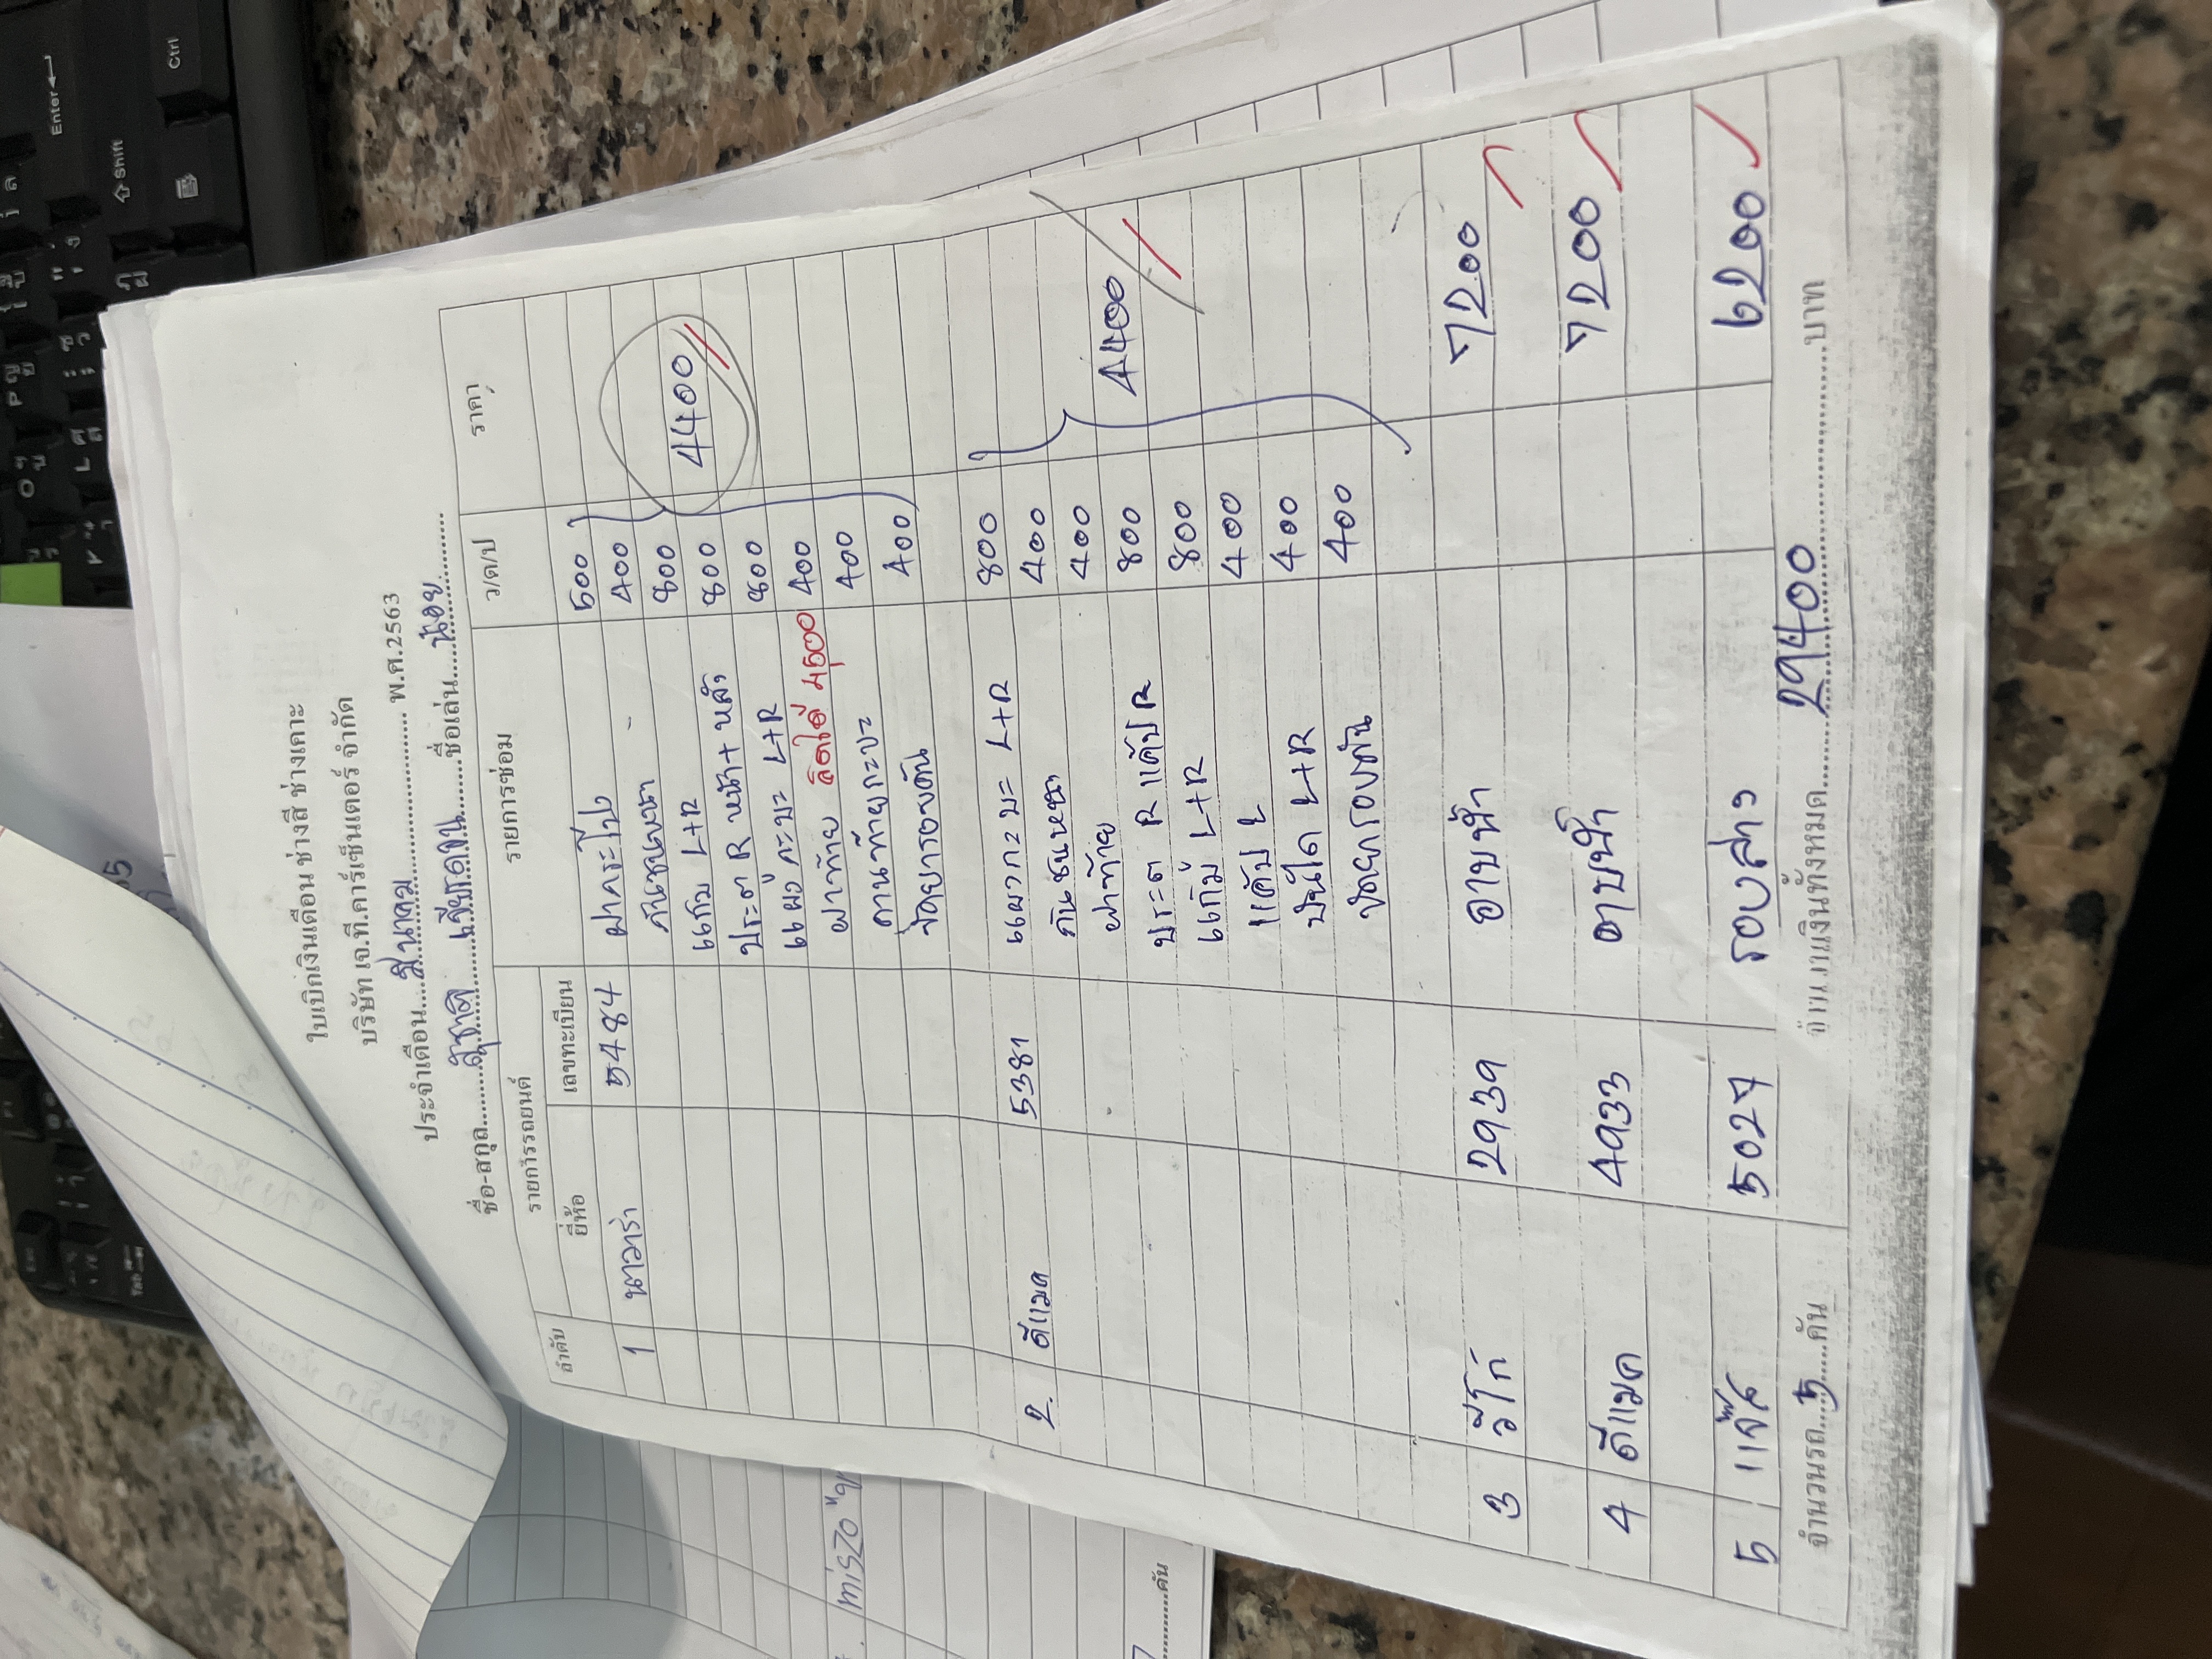 ใบเบิกเงินเดือน ช่างสี ช่างเคาะ
บริษัท เจ.ที.คาร์เซ็นเตอร์ จำกัด
ประจำเดือน....มีนาคม.... พ.ศ.2563
ชื่อ-สกุล....สุชาติ เขียวดขน....ชื่อเล่น....น้อย....
ลำดับ รายการรถยนต์ รายการซ่อม ว/ด/ป ราคา
ยี่ห้อ เลขทะเบียน
1 นาวาร่า 5484 ฝากระโปง 500
กันชนหน้า 400
แก้ม L+R 800
ประตู R หน้า + หลัง 800 4400
แผงกะบะ L+R 800
ฝาท้าย คิดได้ 4500 400
กานท้ายกะบะ 400
400
2. ดีแมค 5381 แผงกะบะ L+R 800
กันชนหน้า 400
ฝาท้าย 400
ประตู R แค้ป R 800 4400
แก้ม L+R 800
แค้ป L 400
บันได L+R 400
400
3 วีโก้ 2939 อาบน้ำ 7200
4 ดีแมค 4933 อาบน้ำ 7200
5 แจ๊ส 5027 รอบสาง 6200
จำนวนรถ....5....คัน จำนวนเงินทั้งหมด....29400....บาท
Enter
Shift
Ctrl
Tab
miszo
คัน